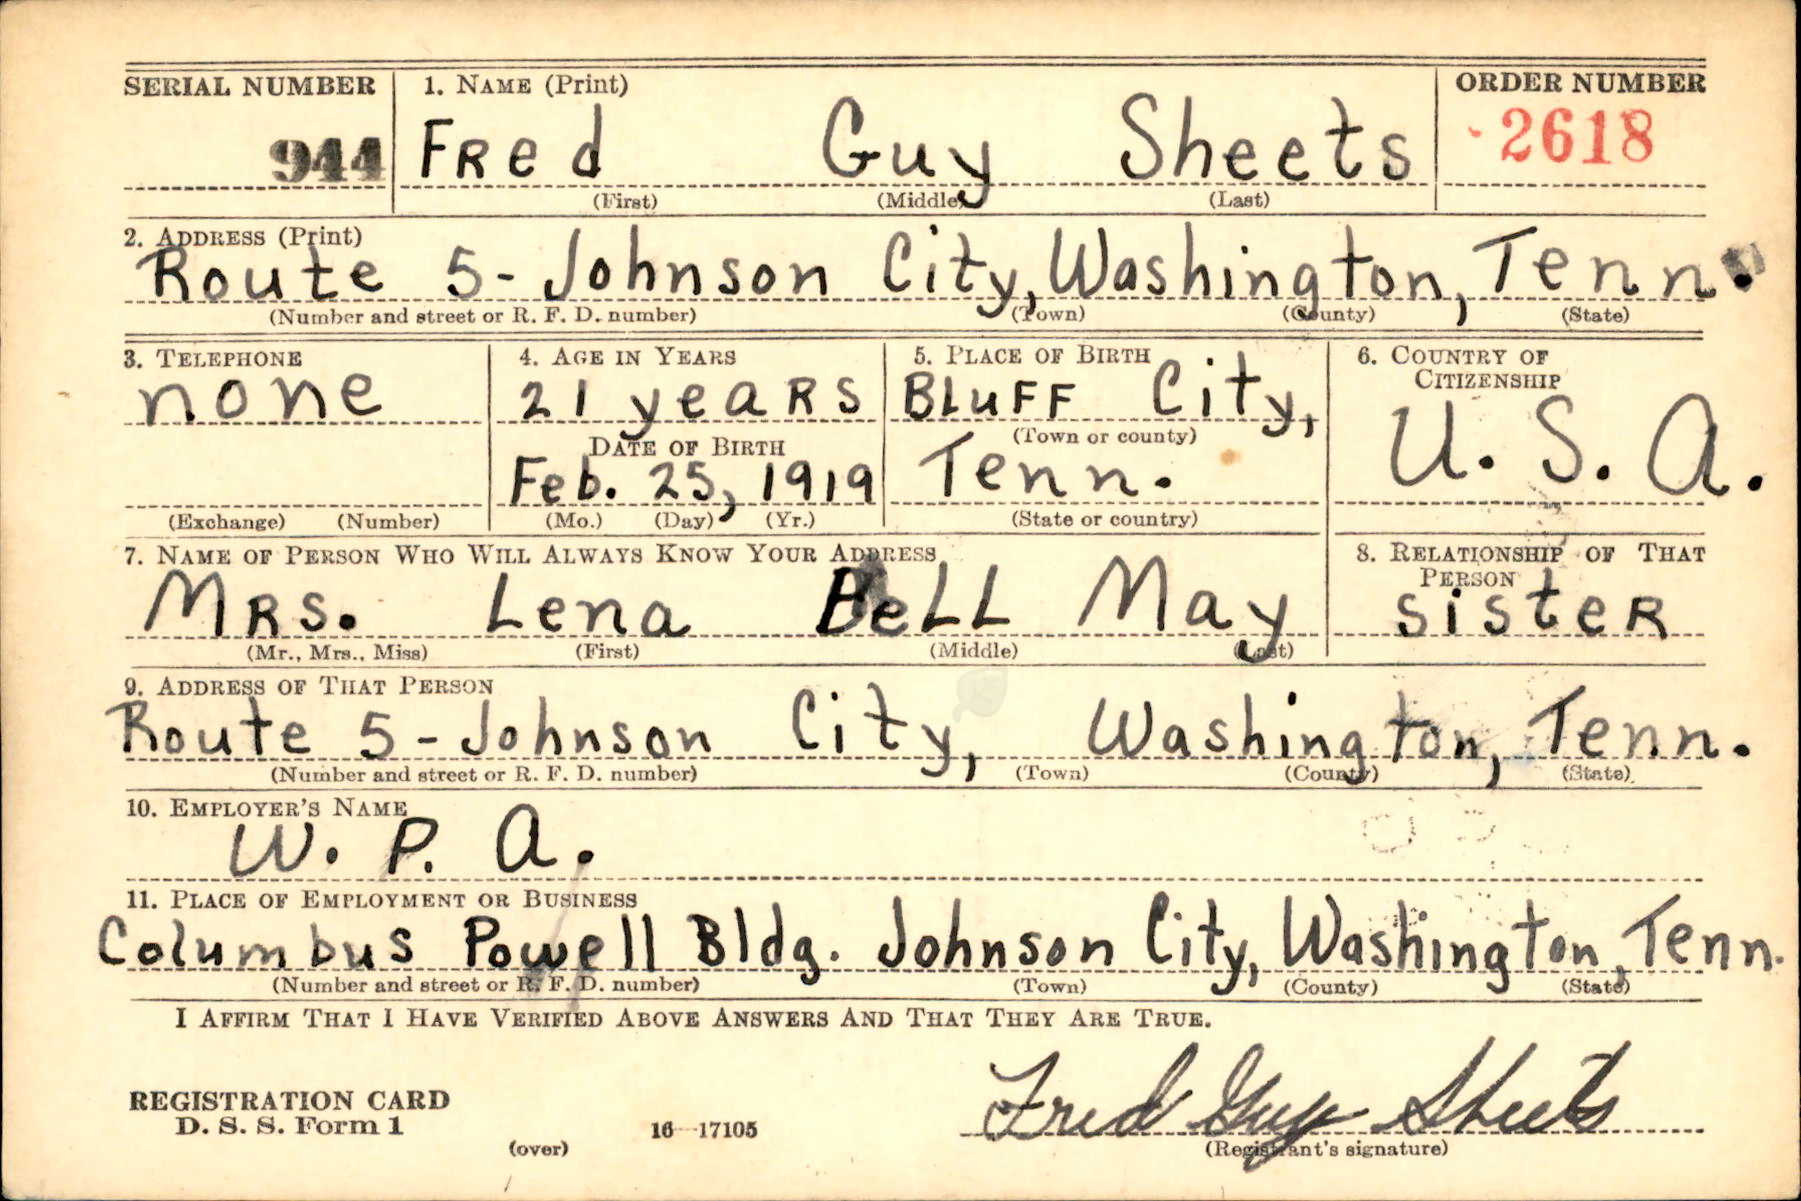 SERIAL NUMBER 1. NAME (Print) ORDER NUMBER
944 FRed Guy Sheets 2618
(First) (Middle) (Last)
2. ADDRESS (Print)
Route 5- Johnson City, Washington, Tenn.
(Number and street or R. F. D. number) (Town) (County) (State)
3. TELEPHONE 4. AGE IN YEARS 5. PLACE OF BIRTH 6. COUNTRY OF
CITIZENSHIP
none 21 yeaRs BLuFF City,
DATE OF BIRTH (Town or county) U. S. A.
Feb. 25, 1919 Tenn.
(Exchange) (Number) (Mo.) (Day) (Yr.) (State or country)
7. NAME OF PERSON WHO WILL ALWAYS KNOW YOUR ADDRESS 8. RELATIONSHIP OF THAT
PERSON
MRS. Lena BeLL May sisteR
(Mr., Mrs., Miss) (First) (Middle) (Last)
9. ADDRESS OF THAT PERSON
Route 5- Johnson City, Washington, Tenn.
(Number and street or R. F. D. number) (Town) (County) (State)
10. EMPLOYER'S NAME
W. P. A.
11. PLACE OF EMPLOYMENT OR BUSINESS
Columbus Powell Bldg. Johnson City, Washington, Tenn.
(Number and street or R. F. D. number) (Town) (County) (State)
I AFFIRM THAT I HAVE VERIFIED ABOVE ANSWERS AND THAT THEY ARE TRUE.
REGISTRATION CARD Fred Guy Sheets
D. S. S. Form 1 16—17105
(over) (Registrant's signature)